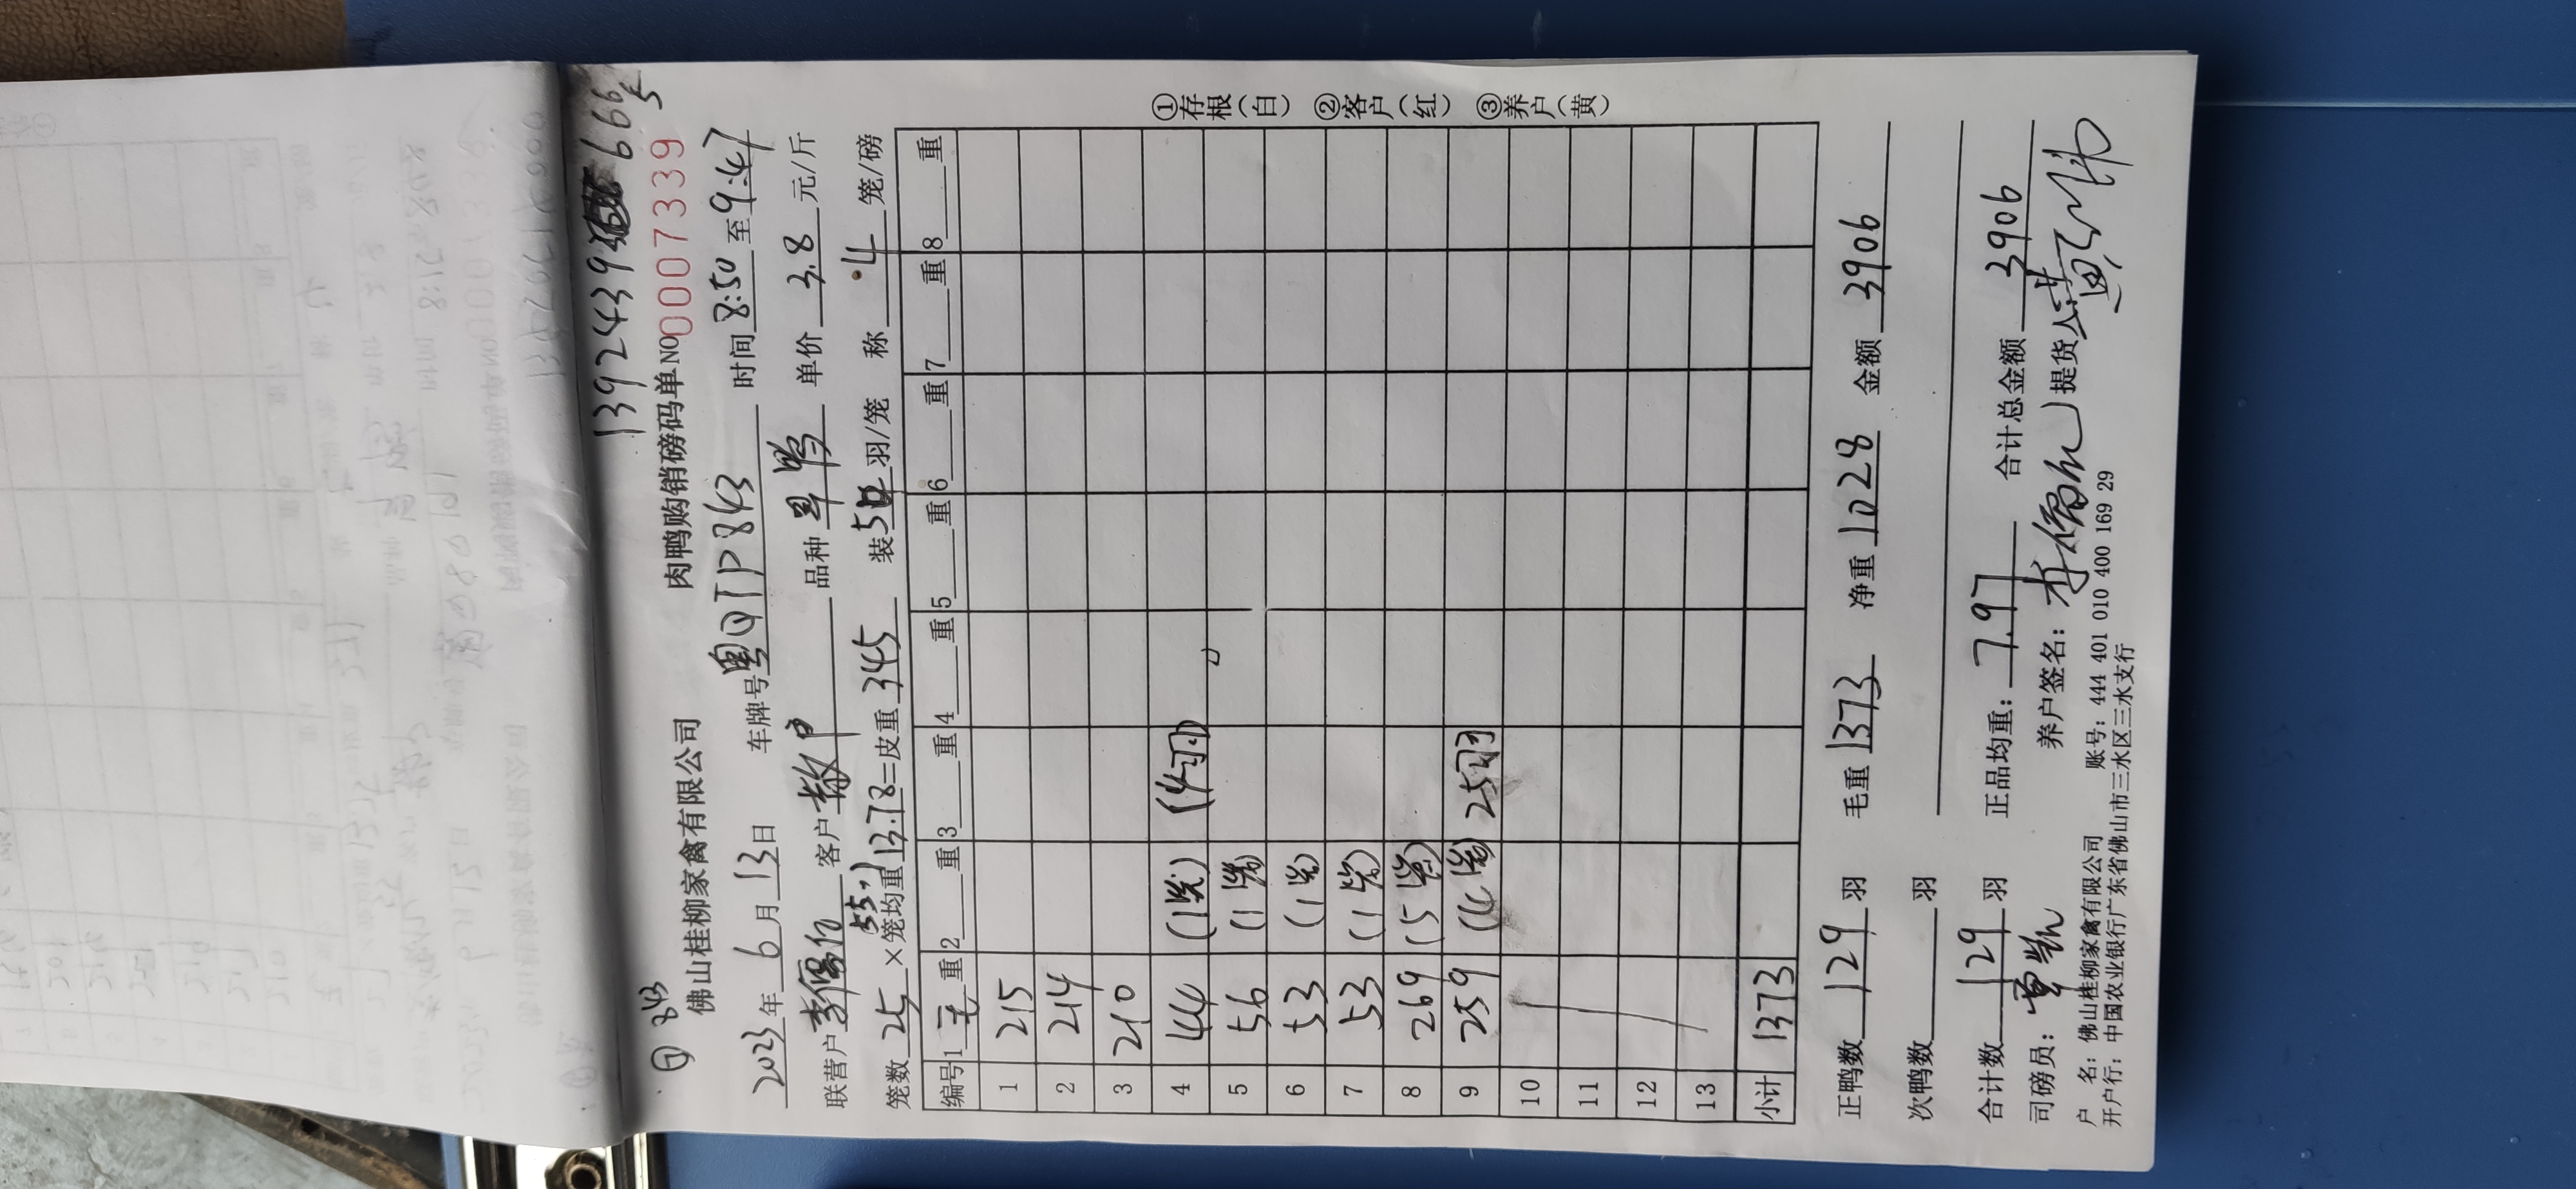 13924396665
843
佛山桂柳家禽有限公司 肉鸭购销磅码单 NO0007339
2023年6月13日 车牌号粤QTP843 时间8:50至9:47
联营户 客户散户 品种旱鸭 单价3.8元/斤
笼数25×笼均重13.78=皮重345 装5羽/笼 称4笼/磅
编号 1毛重 2重 3重 4重 5重 6重 7重 8重
1 215
2 214
3 210
4 44 (1笼) (4羽)
5 56 (1笼)
6 53 (1笼)
7 53 (1笼)
8 269 (5笼)
9 259 (4笼) 25羽
10
11
12
13
小计 1373
①存根(白) ②客户(红) ③养户(黄)
正鸭数129羽 毛重1373 净重1028 金额3906
次鸭数 羽
合计数129羽 正品均重：7.97 合计总金额3906
司磅员： 养户签名： 提货人：
户 名：佛山桂柳家禽有限公司 账号：444 401 010 400 169 29
开户行：中国农业银行广东省佛山市三水区三水支行